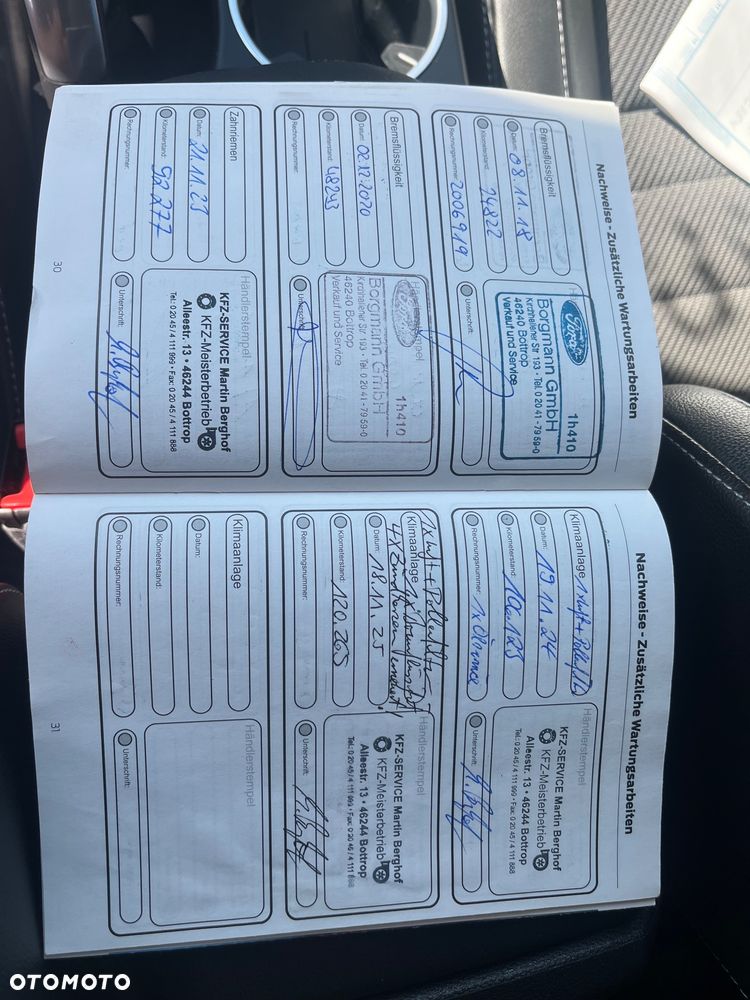 Nachweise - Zusätzliche Wartungsarbeiten
Bremsflüssigkeit
Datum: 08.11.18
Kilometerstand: 24822
Rechnungsnummer: 2006919
Ford
1h410
Borgmann GmbH
Kirchhellener Str. 193 • Tel. 0 20 41 - 79 59-0
46240 Bottrop
Verkauf und Service
Unterschrift:
Bremsflüssigkeit
Datum: 02.12.2020
Kilometerstand: 48293
Rechnungsnummer:
Händlerstempel
Ford
1h410
Borgmann GmbH
Kirchhellener Str. 193 • Tel. 0 20 41 - 79 59-0
46240 Bottrop
Verkauf und Service
Unterschrift:
Zahnriemen
Datum: 21.11.23
Kilometerstand: 92.277
Rechnungsnummer:
Händlerstempel
KFZ-SERVICE Martin Berghof
KFZ-Meisterbetrieb
Alleestr. 13 • 46244 Bottrop
Tel.: 0 20 45 / 4 111 999 • Fax: 0 20 45 / 4 111 888
Unterschrift:
30
Nachweise - Zusätzliche Wartungsarbeiten
Klimaanlage 1x Luft + Pollenfilter
Datum: 19.11.24
Kilometerstand: 106.125
Rechnungsnummer:
Händlerstempel
KFZ-SERVICE Martin Berghof
KFZ-Meisterbetrieb
Alleestr. 13 • 46244 Bottrop
Tel.: 0 20 45 / 4 111 999 • Fax: 0 20 45 / 4 111 888
Unterschrift:
1x Luft + Pollenfilter
Klimaanlage 1x Bremsflüssigkeit
4x Zündkerzen erneuert!
Datum: 18.11.25
Kilometerstand: 120.265
Rechnungsnummer:
Händlerstempel
KFZ-SERVICE Martin Berghof
KFZ-Meisterbetrieb
Alleestr. 13 • 46244 Bottrop
Tel.: 0 20 45 / 4 111 999 • Fax: 0 20 45 / 4 111 888
Unterschrift:
Klimaanlage
Datum:
Kilometerstand:
Rechnungsnummer:
Händlerstempel
Unterschrift:
31
OTOMOTO